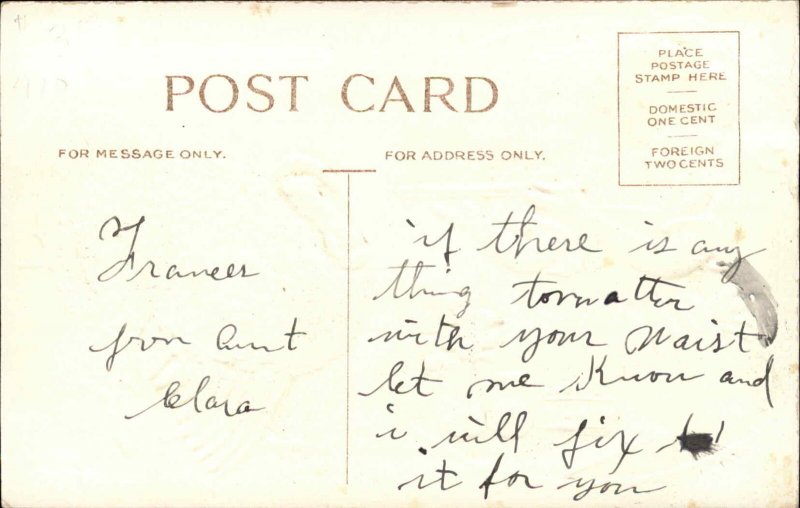 POST CARD
PLACE
POSTAGE
STAMP HERE
DOMESTIC
ONE CENT
FOREIGN
TWO CENTS
FOR MESSAGE ONLY.
FOR ADDRESS ONLY.
Frances
from Aunt
Clara
if there is any
thing
with your Waist
let me Know and
i will fix
it for you